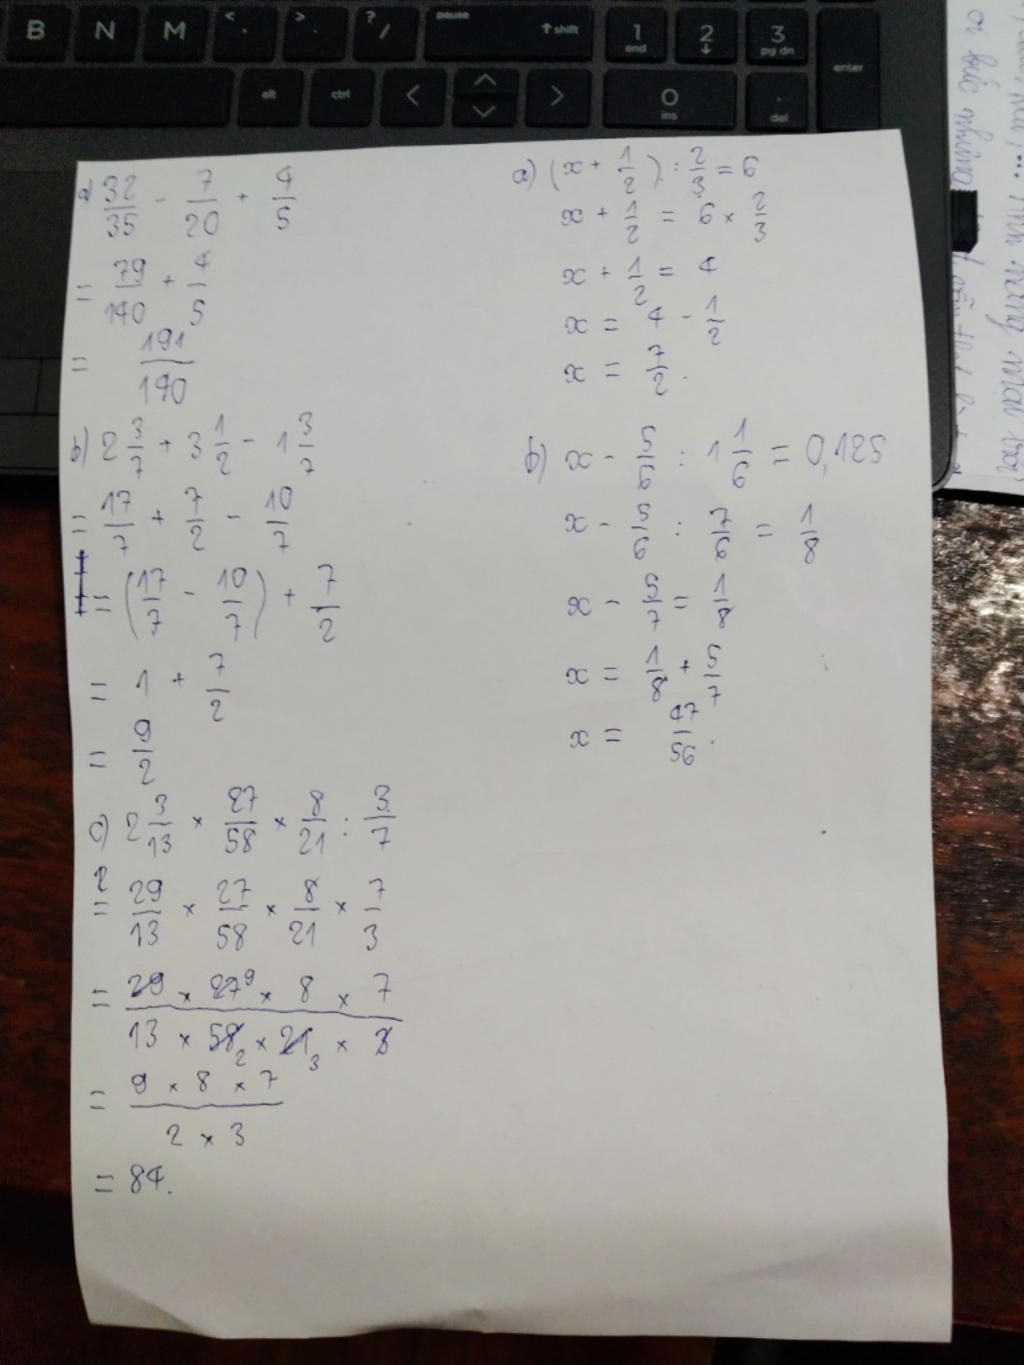 B N M < , > . ? / pause ↑ shift 1 end 2 ↓ 3 pg dn enter
alt ctrl < > 0 ins . del
a) 32/35 - 7/20 + 4/5
= 79/140 + 4/5
= 191/140
b) 2 3/7 + 3 1/2 - 1 3/7
= 17/7 + 7/2 - 10/7
= (17/7 - 10/7) + 7/2
= 1 + 7/2
= 9/2
c) 2 3/13 × 27/58 × 8/21 : 3/7
= 29/13 × 27/58 × 8/21 × 7/3
= 29 × 27 9 × 8 × 7 / 13 × 58 2 × 21 3 × 3
= 9 × 8 × 7 / 2 × 3
= 84.
a) (x + 1/2) : 2/3 = 6
x + 1/2 = 6 × 2/3
x + 1/2 = 4
x = 4 - 1/2
x = 7/2.
b) x - 5/6 : 1 1/6 = 0,125
x - 5/6 : 7/6 = 1/8
x - 5/7 = 1/8
x = 1/8 + 5/7
x = 47/56.